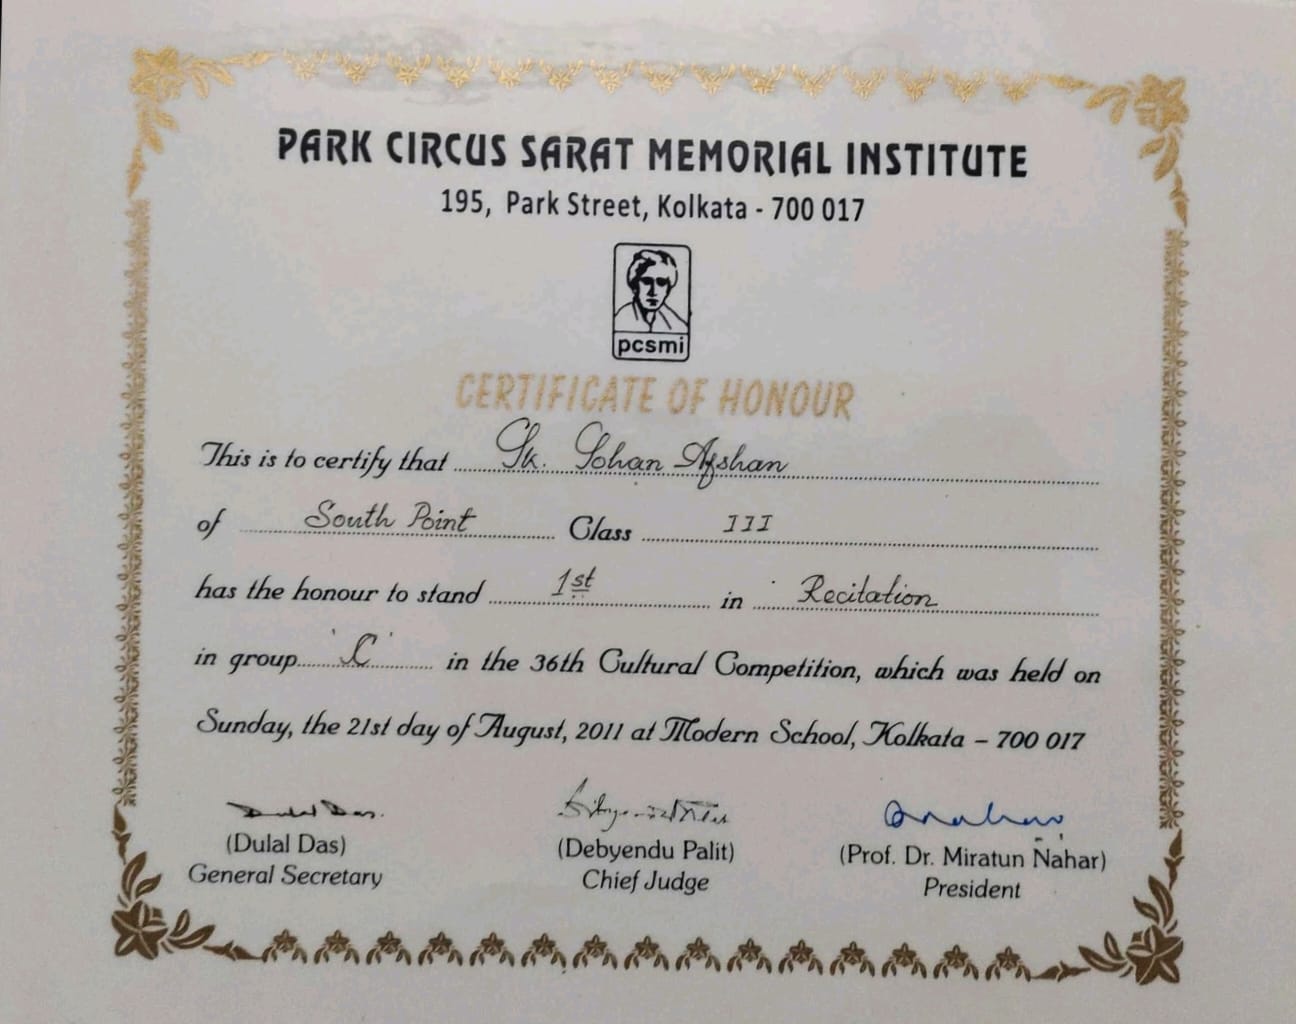 PARK CIRCUS SARAT MEMORIAL INSTITUTE
195, Park Street, Kolkata - 700 017
pcsmi
CERTIFICATE OF HONOUR
This is to certify that Sk. Sohan Afshan
of South Point Class III
has the honour to stand 1st in Recitation
in group 'C' in the 36th Cultural Competition, which was held on
Sunday, the 21st day of August, 2011 at Modern School, Kolkata – 700 017
Dulal Das.
(Dulal Das) (Debyendu Palit) (Prof. Dr. Miratun Nahar)
General Secretary Chief Judge President